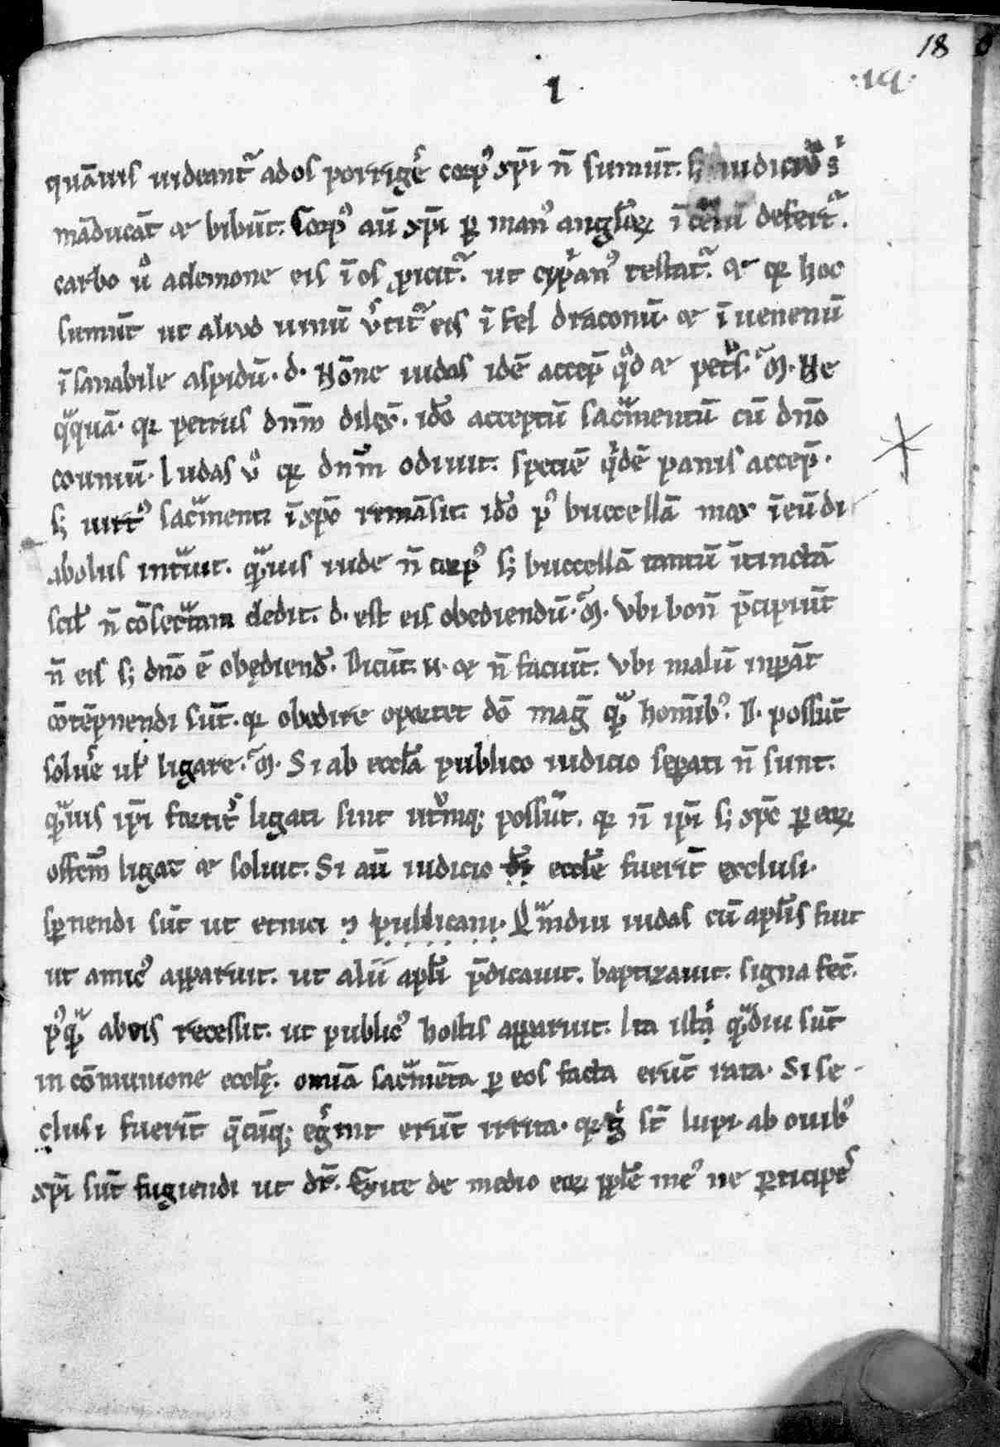 18
·19·
I
quāuis uideant᷑ ad os porrigē corp⁹ xp̄i n̄ sumūt. sꝫ iudiciū sᵢ
māducāt ⁊ bibūt. Corp⁹ aū xp̄i ꝑ man⁹ angl̄oꝝ ī celū defert᷑.
carbo u͛o a demone eis ī os ꝓicit᷑. ut cyp̄an⁹ testat᷑. ⁊ qꝛ hoc
sumūt ut aliud uinū u͛tit᷑ eis ī fel draconū. ⁊ ī uenenū
īsanabile aspidū. d. Nōne iudas idē accep̄ qͦd ⁊ petrꝰ. M. Ne
qͣquā. qꝛ petrus dn̄m dilex̄. id̄o acceptū sacͣmentū cū dn̄o
coniuū. Iudas u͛o qꝛ dn̄m odiuit. speciē qͥdē panis accep̄.
sꝫ uirt⁹ sacͣmenti ī xp̄o remāsit. id̄o p⁹ buccellā mox ī eū di
abolus intͣuit. qͣuis iude n̄ corp⁹ sꝫ buccellā tantū ītinctā
scil̄ n̄ cōsecͣtam dedit. d. est eis obediendū. M. Vbi bon̄ p̄cipiūt
n̄ eis sꝫ dn̄o ē obediend̄. Dicūt .n. ⁊ n̄ faciūt. Vbi malū inp̄āt
cōtēpnendi sūt. qꝛ obedire oportet dō maḡ qͣ hom̄ib⁹. D. possūt
solu͛e ul̄ ligare. M. Si ab eccl̄a publico iudicio sepati n̄ sunt.
qͣuis ip̄i fortit͛ ligati sint utͥmqꝫ possūt. qꝛ n̄ ip̄i sꝫ xp̄c ꝑ eoꝝ
offcm̄ ligat ⁊ soluit. Si aū iudicio eccl̄e fuerīt exclusi.
sꝑnendi sūt ut etnici ⁊ publicani. Qͣmdiu iudas cū apl̄is fuit
ut amic⁹ apparuit. ut alii apl̄i p̄dicauit. baptizauit. signa fec̄.
p⁹qͣ ab eis recessit. ut public⁹ hostis apparuit. Ita isti qͣdiu sūt
in cōmunione eccl̄ę. om̄ia sacͣmēta ꝑ eos facta erūt rata. Si se-
clusi fuerīt q̄cūqꝫ eg͛int erūt irrita. qꝛ gͥ st̄ lupi. ab ouib⁹
xp̄i sūt fugiendi ut dr̄. Exite de medio eoꝝ pp̄le me⁹ ne ꝑticipes